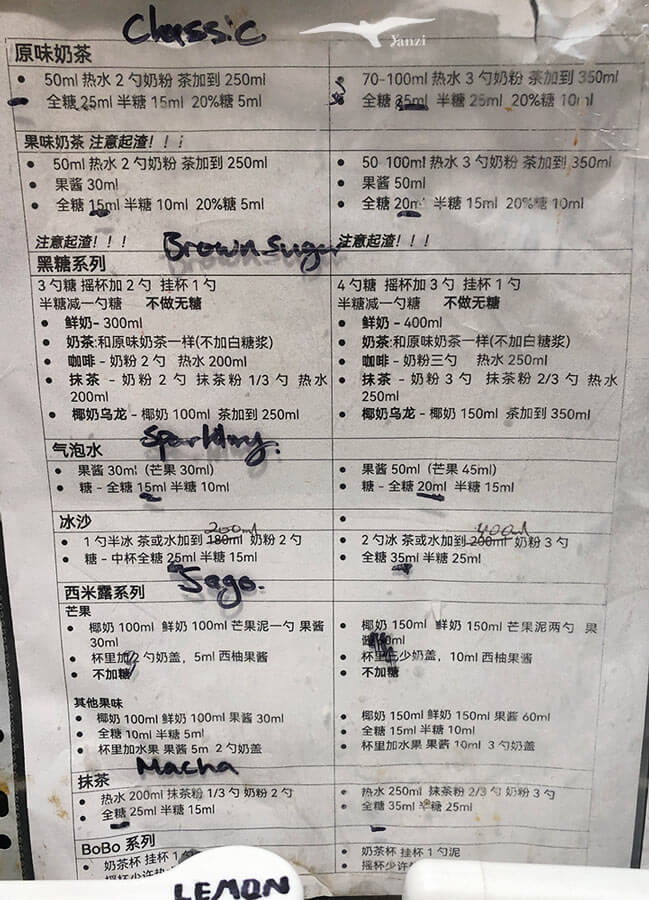 Classic
Yanzi
原味奶茶
• 50ml 热水 2 勺奶粉 茶加到 250ml
• 全糖 25ml 半糖 15ml 20%糖 5ml
• 70-100ml 热水 3 勺奶粉 茶加到 350ml
• 全糖 35ml 半糖 25ml 20%糖 10ml
果味奶茶 注意起渣！！！
• 50ml 热水 2 勺奶粉 茶加到 250ml
• 果酱 30ml
• 全糖 15ml 半糖 10ml 20%糖 5ml
注意起渣！！！
• 50-100ml 热水 3 勺奶粉 茶加到 350ml
• 果酱 50ml
• 全糖 20ml 半糖 15ml 20%糖 10ml
注意起渣！！！
Brown Sugar
黑糖系列
3 勺糖 摇杯加 2 勺 挂杯 1 勺
半糖减一勺糖 不做无糖
• 鲜奶- 300ml
• 奶茶:和原味奶茶一样(不加白糖浆)
• 咖啡 - 奶粉 2 勺 热水 200ml
• 抹茶 - 奶粉 2 勺 抹茶粉 1/3 勺 热水
200ml
• 椰奶乌龙 - 椰奶 100ml 茶加到 250ml
4 勺糖 摇杯加 3 勺 挂杯 1 勺
半糖减一勺糖 不做无糖
• 鲜奶 - 400ml
• 奶茶:和原味奶茶一样(不加白糖浆)
• 咖啡 - 奶粉三勺 热水 250ml
• 抹茶 - 奶粉 3 勺 抹茶粉 2/3 勺 热水
250ml
• 椰奶乌龙 - 椰奶 150ml 茶加到 350ml
Sparkling.
气泡水
• 果酱 30ml（芒果 30ml）
• 糖 - 全糖 15ml 半糖 10ml
• 果酱 50ml（芒果 45ml）
• 糖 - 全糖 20ml 半糖 15ml
冰沙
200ml
• 1 勺半冰 茶或水加到 180ml 奶粉 2 勺
• 糖 - 中杯全糖 25ml 半糖 15ml
400ml
• 2 勺冰 茶或水加到 200ml 奶粉 3 勺
• 全糖 35ml 半糖 25ml
Sago.
西米露系列
芒果
• 椰奶 100ml 鲜奶 100ml 芒果泥一勺 果酱
30ml
• 杯里加 勺奶盖，5ml 西柚果酱
• 不加糖
• 椰奶 150ml 鲜奶 150ml 芒果泥两勺 果
• 杯里 少奶盖，10ml 西柚果酱
• 不加糖
其他果味
• 椰奶 100ml 鲜奶 100ml 果酱 30ml
• 全糖 10ml 半糖 5ml
• 杯里加水果 果酱 5m 2 勺奶盖
• 椰奶 150ml 鲜奶 150ml 果酱 60ml
• 全糖 15ml 半糖 10ml
• 杯里加水果 果酱 10ml 3 勺奶盖
Macha
抹茶
• 热水 200ml 抹茶粉 1/3 勺 奶粉 2 勺
• 全糖 25ml 半糖 15ml
• 热水 250ml 抹茶粉 2/3 勺 奶粉 3 勺
• 全糖 35ml 半糖 25ml
BoBo 系列
• 奶茶杯 挂杯 1
• 奶茶杯 挂杯 1 勺泥
• 摇杯少许
LEMON